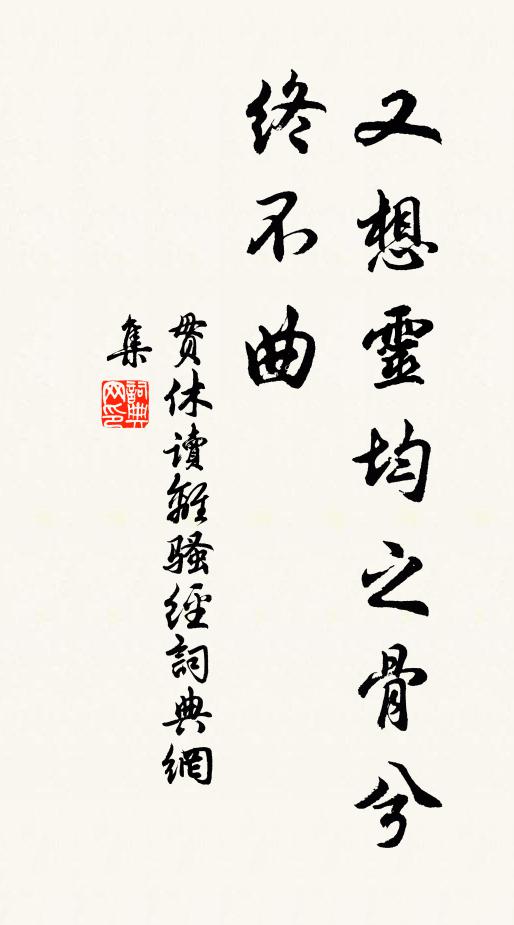 又想靈均之骨兮
終不曲
贯休讀離騷經詞典網
集
詞典
网印